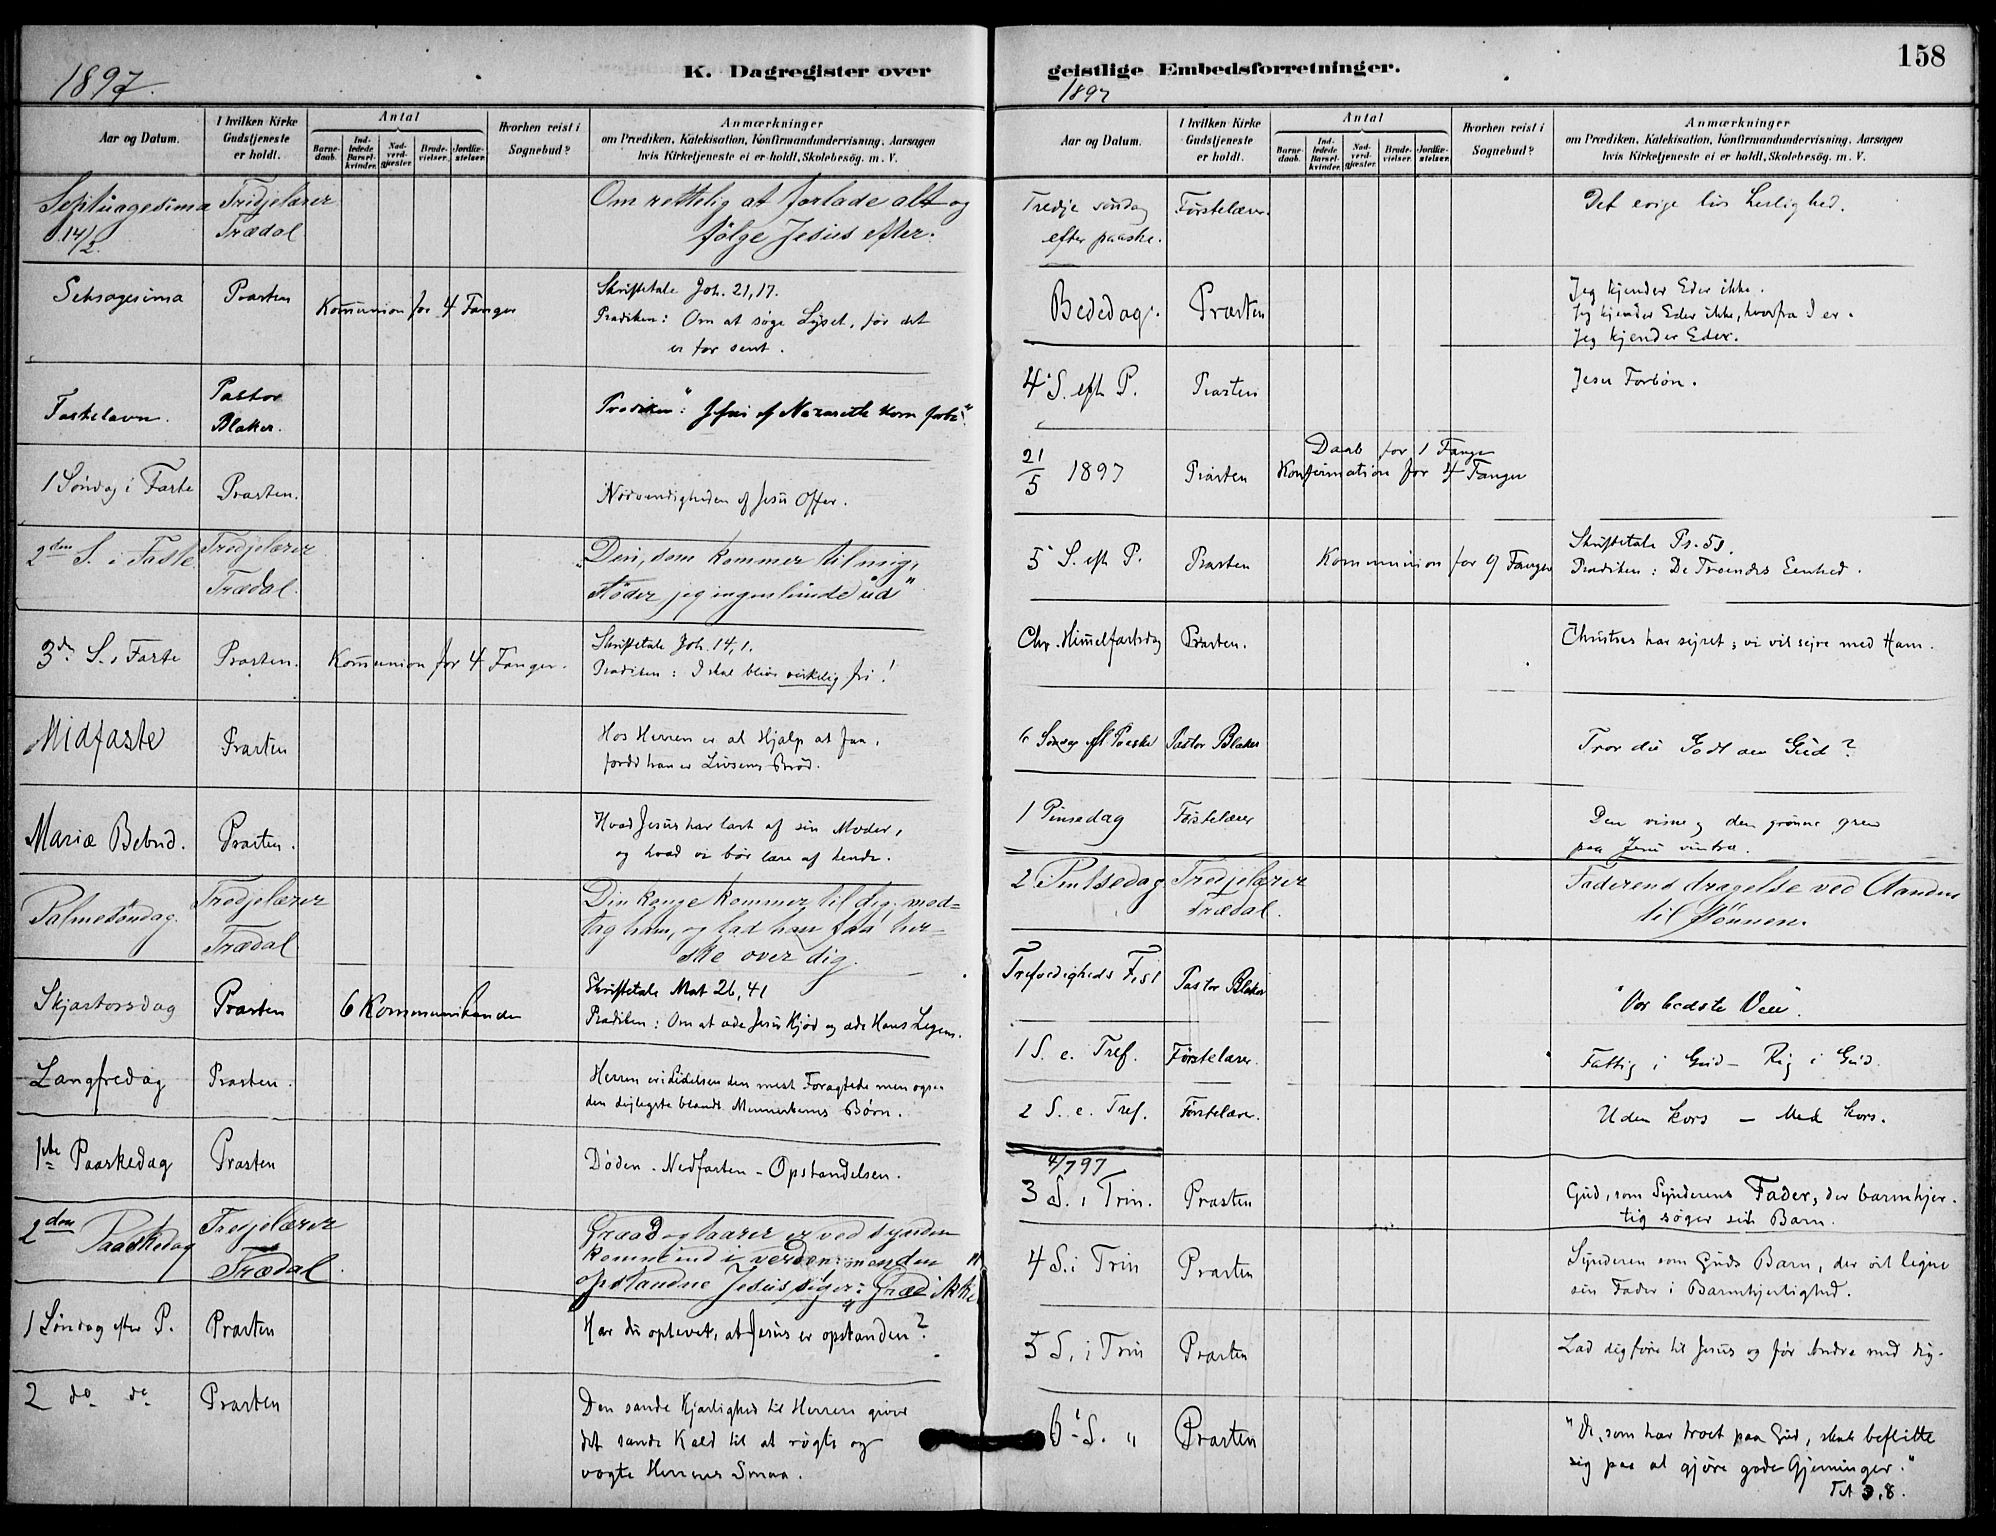 1897.
K. Dagregister over
Aar og Datum.
I hvilken Kirke Gudstjeneste er holdt.
Antal
Barnedaab.
Indledede Barselkvinder.
Nadverdgjester.
Brudevielser.
Jordfæstelser.
Hvorhen reist i Sognebud?
Anmærkninger
om Prædiken, Katekisation, Konfirmandundervisning, Aarsagen
hvis Kirketjeneste ei er holdt, Skolebesøg. m. V.
Septuagesima Tredjelærer Om rettelig at forlade alt og
14/2 Trædal følge Jesus efter.
Seksagesima Præsten Kommunion for 4 Fanger Skriftetale Joh. 21,17.
Prædiken: Om at søge Lyset, før det
er for sent.
Fastelavn. Pastor Blaker. Prædiken: "Jesus af Nazareth kom forbi".
1 Søndag i Faste Præsten. Nødvendigheden af Jesu Offer.
2den S. i Faste Tredjelærer "Den, som kommer til mig,
Trædal. støder jeg ingenlunde ud"
3die S. i Faste Præsten. Kommunion for 4 Fanger. Skriftetale Joh. 14,1.
Prædiken: I skal blive virkelig fri!
Midfaste Præsten Hos Herren er al Hjælp at faa,
fordi han er Livsens Brød.
Mariæ Bebud. Præsten. Hvad Jesus har lært af sin Moder,
og hvad vi bør lære af hende.
Palmesøndag. Tredjelærer Din konge kommer til dig, mod=
Trædal tag ham, og lad ham faa her=
ske over dig.
Skjærtorsdag Præsten 6 Kommunikanter Skriftetale Mat 26,41
Prædiken: Om at æde Jesu Kjød og æde Hans Legem.
Langfredag Præsten. Herren er i Lidelsen den mest Foragtede men ogsaa
den dejligste blandt Menneskenes Børn.
1ste Paaskedag Præsten Døden - Nedfarten - Opstandelsen.
2den Paaskedag Tredjelærer Graad og taarer er ved synden
Trædal. kommet ind i verden: men den
opstandne Jesus siger: "Græd ikke"
1 Søndag efter P. Præsten Har du oplevet, at Jesus er opstanden?
2 do do Præsten Den sande Kjærlighed til Herren giver
det sande Kald til at røgte og
vogte Herrens Smaa.
158
geistlige Embedsforretninger.
1897
Aar og Datum.
I hvilken Kirke Gudstjeneste er holdt.
Antal
Barnedaab.
Indledede Barselkvinder.
Nadverdgjester.
Brudevielser.
Jordfæstelser.
Hvorhen reist i Sognebud?
Anmærkninger
om Prædiken, Katekisation, Konfirmandundervisning, Aarsagen
hvis Kirketjeneste ei er holdt, Skolebesøg. m. V.
Tredje søndag Førstelærer. Det evige livs herlighed.
efter paaske.
Bededag. Præsten Jeg kjender Eder ikke.
Jeg kjender Eder ikke, hvorfra I er.
Jeg kjender Eder.
4 S. eft P. Præsten Jesu Forbøn.
21/5 1897 Præsten Daab for 1 Fange
Konfirmation for 4 Fanger
5 S. eft P. Præsten Kommunion for 9 Fanger Skriftetale Ps. 51.
Prædiken: De Troendes Eenhed.
Chr. Himmelfartsdag Præsten. Christus har sejret; vi vil sejre med Ham.
6 Søndag eft Paaske Pastor Blaker Tror du Godt om Gud?
1 Pinsedag Førstelærer Den visne og den grønne gren
paa Jesu vintræ.
2 Pintsedag Tredjelærer Faderens dragelse ved Aanden
Trædal. til Sønnen.
Trefoedigheds Fest Pastor Blaker "Vor bedste Ven".
1 S. e. Tref. Førstelærer. Fattig i Gud - Rig i Gud.
2 S. e. Tref. Førstelærer. Uden kors - Med kors.
4/7 97
3 S. i Trin. Præsten Gud, som Synderens Fader, der barmhjer-
tig søger sit Barn.
4 S. i Trin Præsten Synderen som Guds Barn, der vil ligne
sin Fader i Barmhjertighed.
5 S. i Trin Præsten Lad dig føre til Jesus og før Andre med dig.
6 S. " Præsten "De, som har troet paa Gud, skal beflitte
sig paa at gjøre gode Gjerninger."
Tit 3,8.